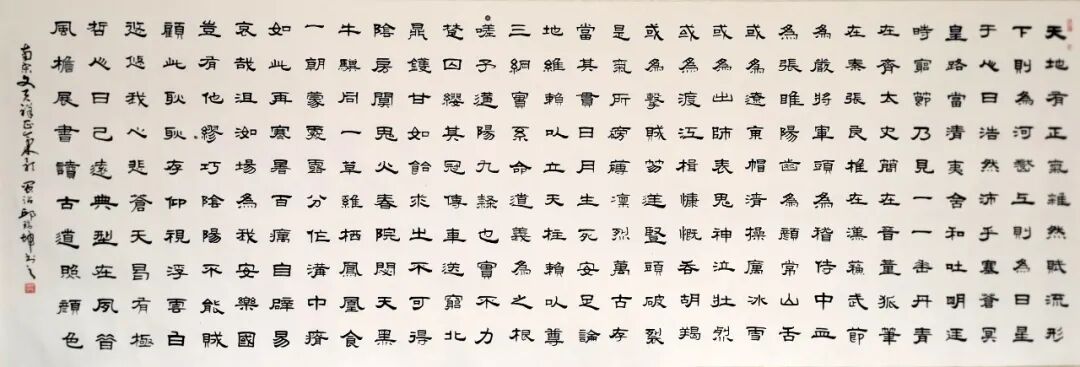 天地有正氣雜然賦流形
下則為河嶽上則為日星
于人曰浩然沛乎塞蒼冥
皇路當清夷含和吐明廷
時窮節乃見一一垂丹青
在齊太史簡在晉董狐筆
在秦張良椎在漢蘇武節
為嚴將軍頭為嵇侍中血
為張睢陽齒為顏常山舌
或為遼東帽清操厲冰雪
或為出師表鬼神泣壯烈
或為渡江楫慷慨吞胡羯
或為擊賊笏逆豎頭破裂
是氣所磅礴凜烈萬古存
當其貫日月生死安足論
地維賴以立天柱賴以尊
三綱實系命道義為之根
嗟予遘陽九隸也實不力
楚囚纓其冠傳車送窮北
鼎鑊甘如飴求之不可得
陰房闃鬼火春院閟天黑
牛驥同一草雞栖鳳凰食
一朝蒙霧露分作溝中瘠
如此再寒暑百癘自辟易
哀哉沮洳場為我安樂國
豈有他繆巧陰陽不能賊
顧此耿耿存仰視浮雲白
悠悠我心悲蒼天曷有極
哲人日已遠典型在夙昔
風檐展書讀古道照顏色
南宋文天祥正氣歌